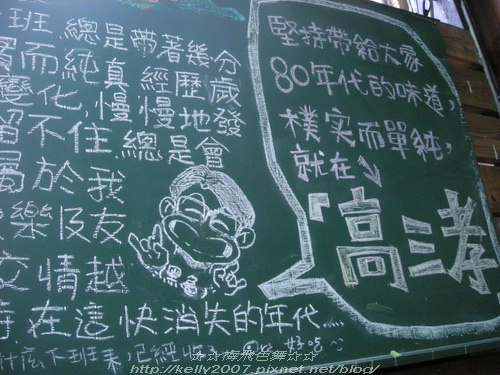 班,總是帶著幾分
而純真,經歷歲
變化,慢慢地發
留不住,總是會
屬於我
樂及友
交情越
在這快消失的年代...
什么不班來,已經
好吃~
堅持帶給大家
80年代的味道,
樸实而單純,
就在↘
「高三孝
☆☆梅飛色舞☆☆
http://kelly2007.pixnet.net/blog/